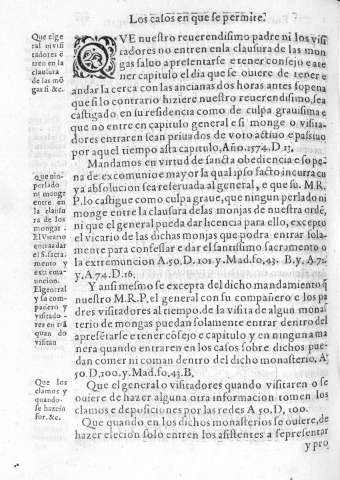 Los casos en que se permite.
Que el ge
ral ni visi
tadores ē
tren en la
clausura
de las mō
gas si &c.
QVE nuestro reuerendisimo padre ni los visi
tadores no entren enla clausura de las mon
gas saluo apresentarse e tener consejo e ate
ner capitulo el dia que se ouiere de tener e
andar la cerca con las ancianas dos horas antes sopena
que si lo contrario hiziere nuestro reuerendisimo, sea
castigado en su residencia como de culpa grauisima e
que no entre en capitulo general e si monge o visita-
dores entraren sean priuados de voto actiuo e pasiuo
por aquel tiempo asta capitulo, Año. 1574. D. 13.
Que nin-
perlado
ni monge
entre en
la clausu
ra de los
mongas.
El Vicario
entrar dar
el S. sacra-
mento y
extrema-
uncion.
El general
y su com-
pañero y
visitado-
res en q̄
quan do
visitan
Mandamos en virtud de sancta obediencia e so pe-
na de excomunio e mayor la qual ipso facto incurra cu
ya absolucion sea reseruada al general, e que su. M. R.
P. lo castigue como culpa graue, que ningun perlado ni
monge entre dela clausura de las monjas de nuestra ordē,
ni que el general pueda dar licencia para ello, excepto
el vicario de las dichas monjas que podra entrar sola-
mente para confesar e dar el santissimo sacramento o
la extremuncion. A 50. D. 101 y. Mad. fo, 43. B. y. A. 71.
y, A. 74. D. 16.
Y ansi mesmo se excepta del dicho mandamiento q̄
nuestro M. R. P. el general con su compañero e los pa
dres visitadores al tiempo. de la visita de algun mona/
terio de mongas puedan solamente entrar dentro del
apresētarse e tener cōsejo e capitulo y en ninguna ma
nera quando entraren en los casos sobre dichos pue-
dan comer ni coman dentro del dicho monasterio. A.
50. D. 100. y. Mad. fo. 43. B,
Que los
clamos y
quando-
se hazein
for. &c.
Que el general o visitadores quando visitaren o se
ouiere de hazer alguna otra informacion tomen los
clamos e deposiciones por las redes A 50. D, 100.
Que quando en los dichos monasterios se ouiere, de
hazer elecion solo entren los asistentes a sepresentar
y pro